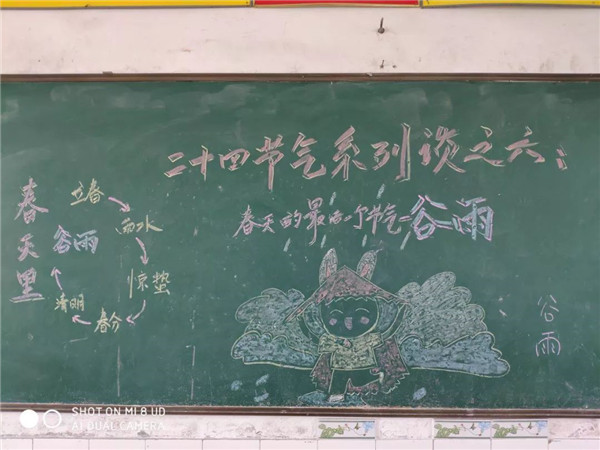 二十四节气系列谈之六：
春天的最后一个节气-谷雨
春天里
立春
雨水
惊蛰
春分
清明
谷雨
谷雨
SHOT ON MI 8 UD
AI DUAL CAMERA